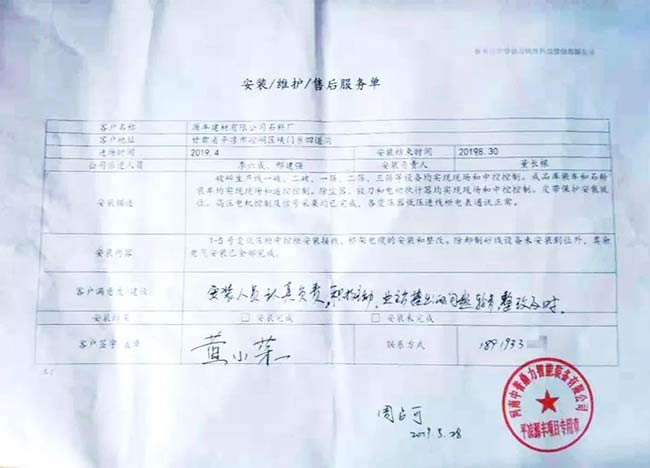 安装/维护/售后服务单
客户名称 源丰建材有限公司石料厂
客户地址 甘肃省平凉市崆峒区峡门乡四道沟
进场时间 2019.4 安装结束时间 20198.30
公司派送人员 李六成、邢建强 安装负责人 董长根
安装描述
破碎生产线一破、二破、一筛、二筛、三筛等设备均实现现场和中控控制。成品库装车和石粉
装车均实现现场和遥控控制。除尘器、铰刀和电动执行器均实现现场和中控控制。皮带保护安装就
位。高压电机控制及信号采集均已完成,各变压器低压进线柜电表通讯正常。
安装内容
1-5号变低压柜中控柜安装接线,桥架电缆的安装和整改。除却制砂线设备未安装到位外,其余
电气安装已全部完成。
客户满意度/建议 安装人员认真负责,积极主动,业主提出的问题 整改及时.
安装结果 □ 安装完成 □ 安装未完成
客户签字 盖章 黄小荣 联系方式 1891933
周占可
2019.8.28
河南中誉鼎力智能装备有限公司
平凉源丰项目专用章